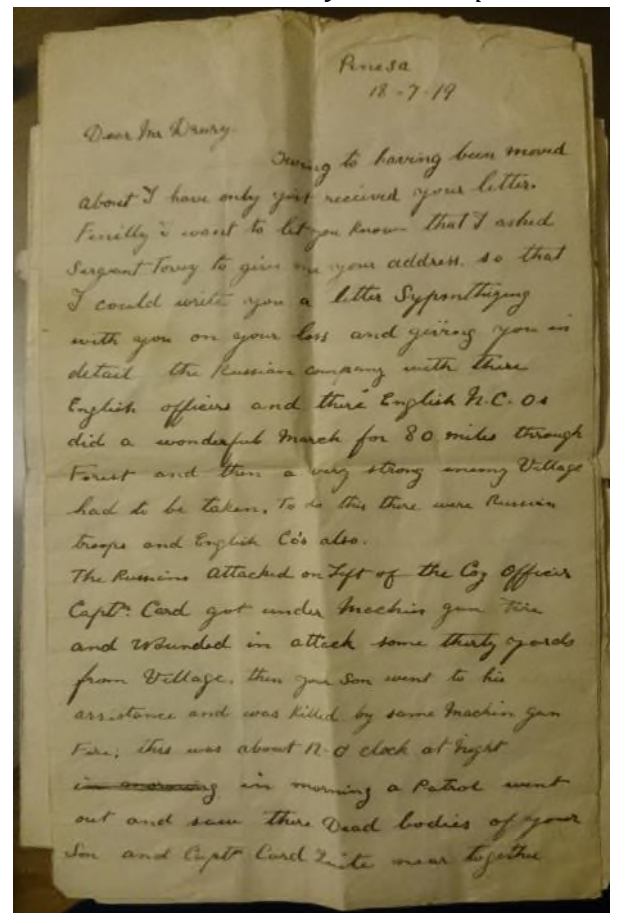 Penesa
18-7-19
Dear Mr Drury
Owing to having been moved
about I have only just recieved your letter.
Finilly i want to let you know that I asked
Sergant Tovey to give me your address, so that
I could write you a letter Sypmthizing
with you on your loss and giving you in
detail the Russian company with there
English officers and there English N.C.Os
did a wonderful march for 80 miles through
Forest and then a very strong enemy Village
had to be taken, To do this there were Russian
troops and English Co's also.
The Russians Attacked on Left of the Coy Officer
Captn. Card got under Machin gun Fire
and Wounded in attack some thirty yards
from Village, then your Son went to his
assistance and was Killed by same Machin gun
Fire, this was about 12-o clock at Night
in morning in morning a Patrol went
out and saw there Dead bodies of your
Son and Captn Card Quite near together